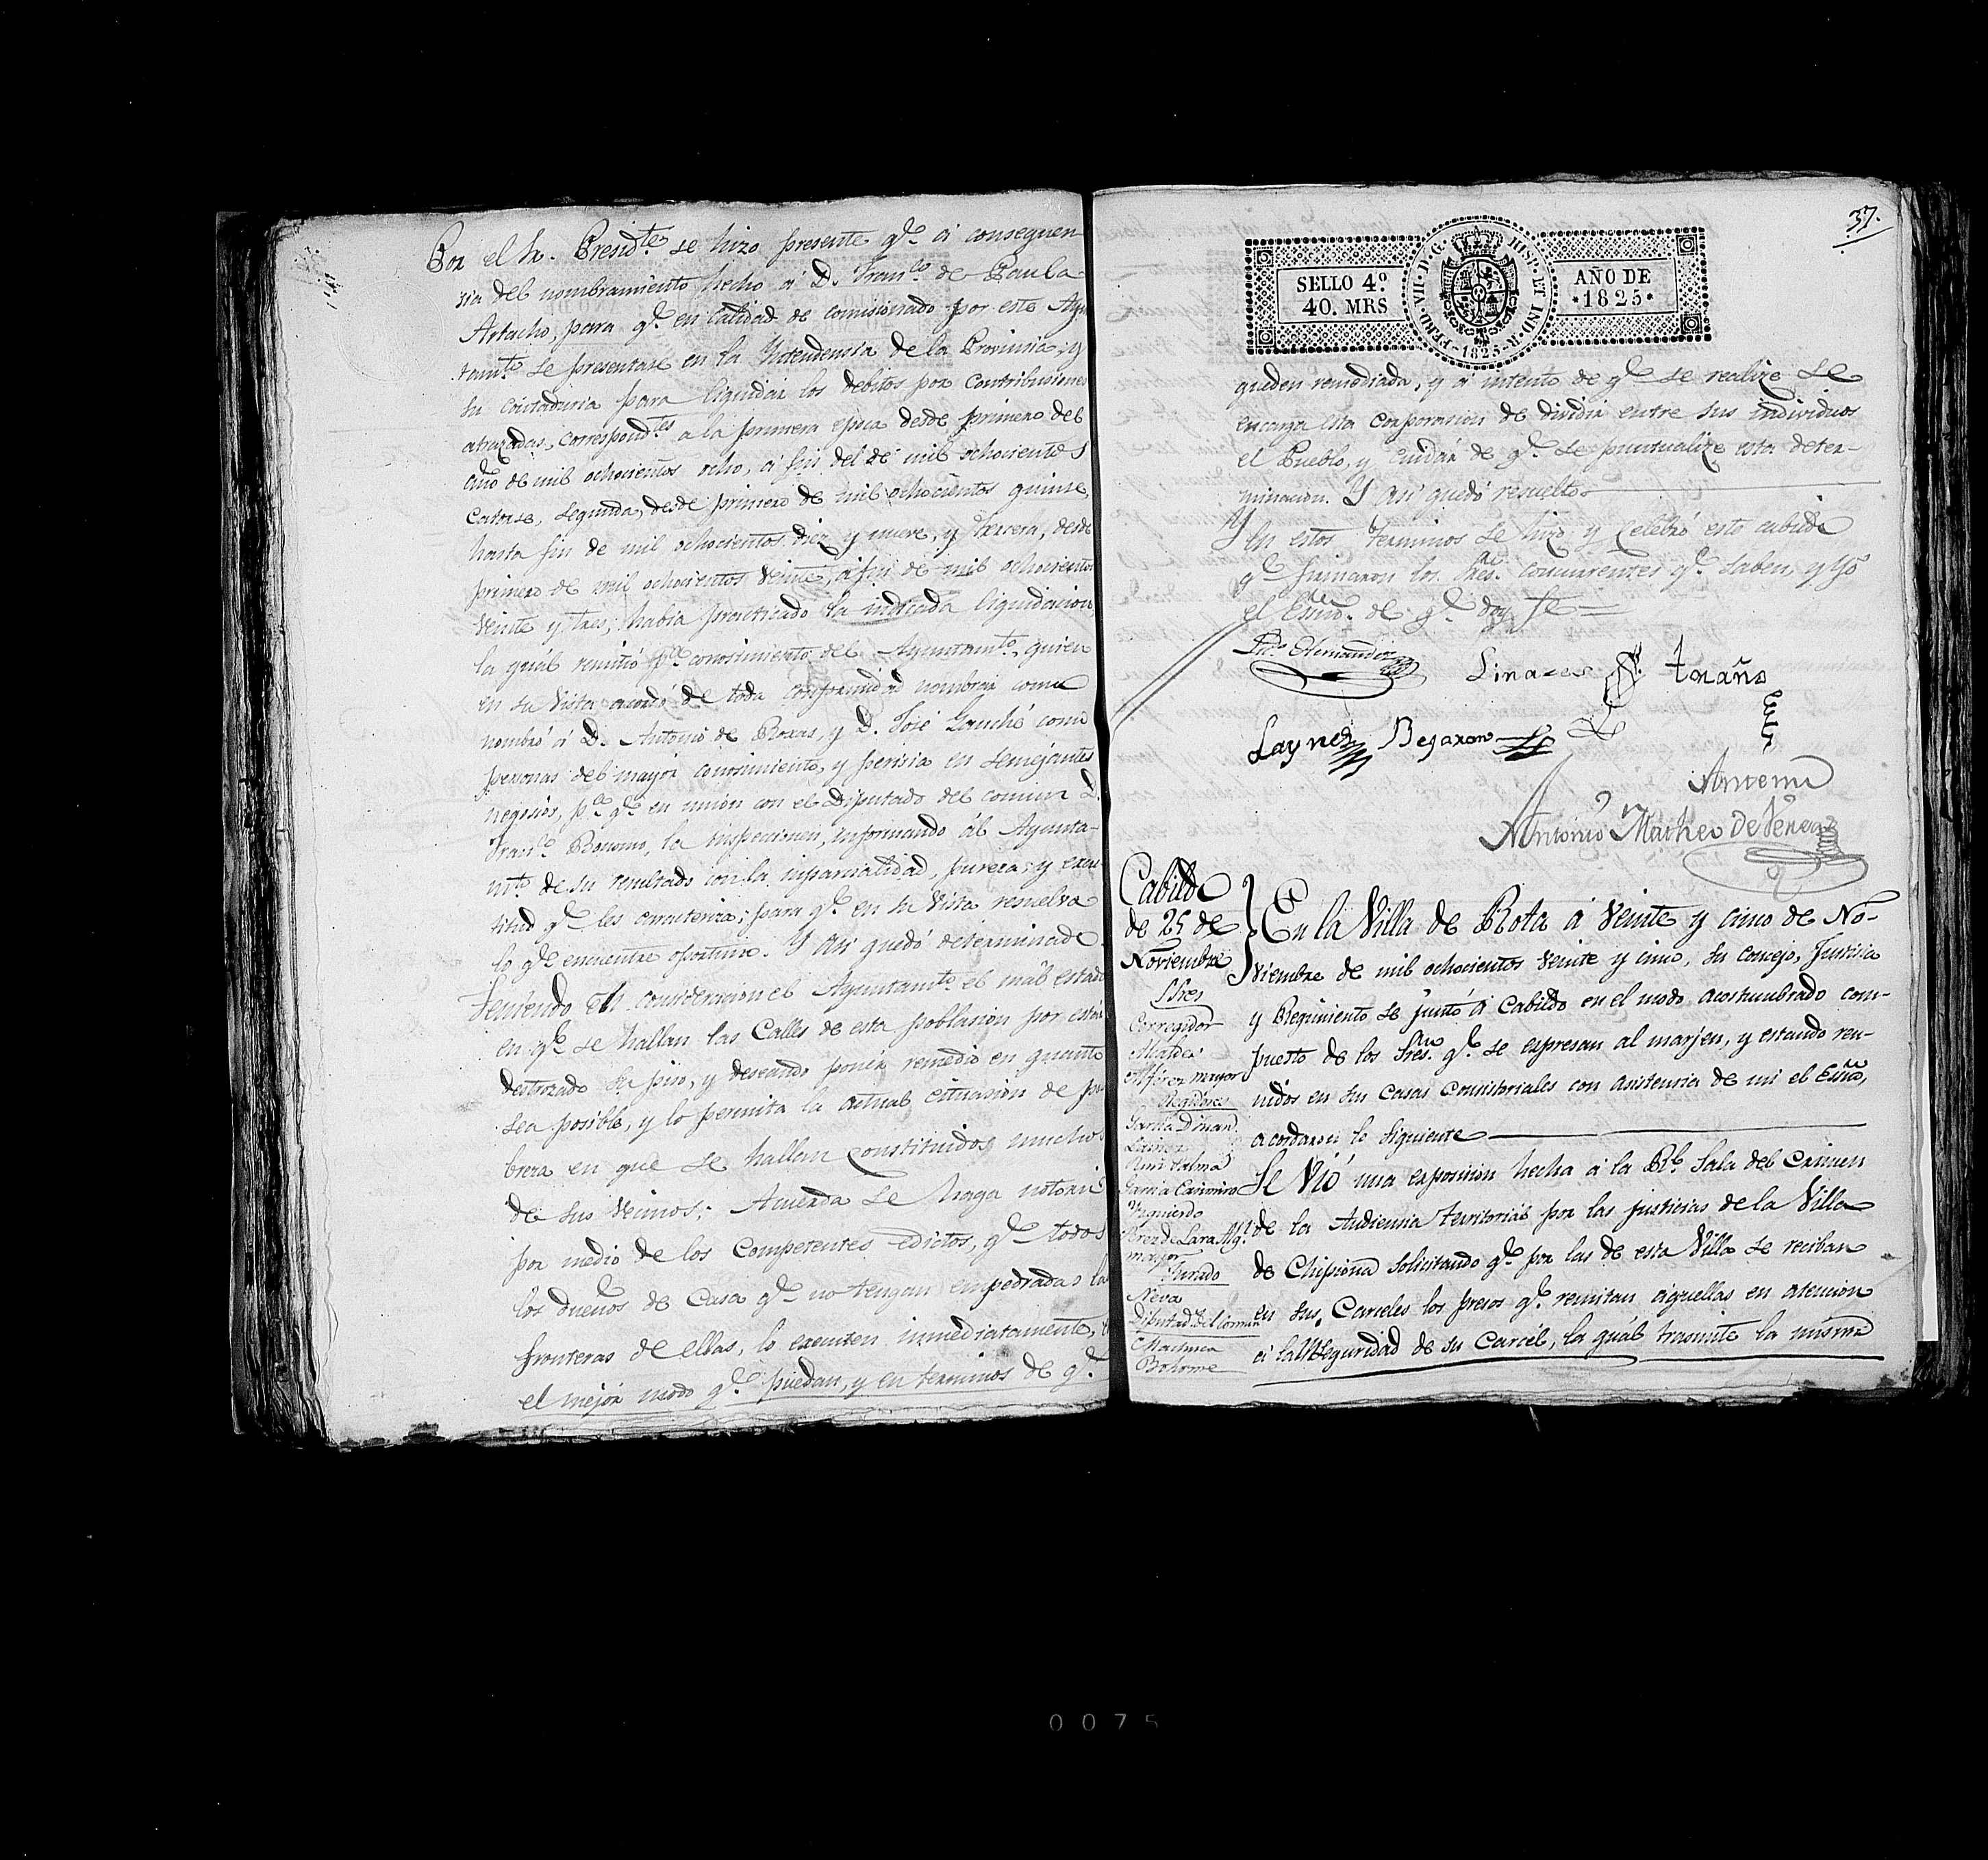 Por el Sr. Presidte. se hizo presente qe. á consequen-
sia del nombramiento hecho á D. Franco. de Paula
Artacho, para qe. en Calidad de comisionado por este Ayun
tamto. se presentase en la Yntendensia de la Provinsia, y
su contaduria para liquidar los debitos por Contribusiones
atrazadas, correspondtes. a la primera epoca desde primero del
año de mil ochocientos ocho, á fin del de mil ochocientos
Catorse, segunda, desde primero de mil ochocientos quinse,
hasta fin de mil ochocientos diez y nueve, y tercera, desde
primero de mil ochocientos veinte, á fin de mil ochocientos
veinte y tres; habia practicado la indicada liquidacion,
la qual remitió pa. conosimiento del Ayuntamto., quien
en su vista acordó de toda conformidad nombrar como
nombró á D. Antonio de Roxas, y D. José Sanché como
personas del mayor conosimiento, y perisia en semejantes
negosios, pa. qe. en unión con el Diputado del comun D.
Franco. Bonomo, la inspecionen, informando al Ayunta-
mto. de su resultado con la inparsialidad, pureza, y exac
titud qe. les carateriza; para qe. en su vista resuelva
lo qe. encuentre oportuno. Y asi quedó determinado.
Teniendo en considerasion el Ayuntamto. el mal estado
en qe. se hallan las Calles de esta poblasion por estar
destrozado su piso, y deseando poner remedio en quanto
sea posible, y lo permita la actual cituasion de po
breza en que se hallan constituidos muchos
de sus vecinos; Acuerda se haga notorio
por medio de los Competentes edictos, qe. todos
los dueños de Casa qe. no tengan empedradas las
fronteras de ellas, lo executen inmediatamente,
el mejor modo qe. puedan, y en terminos de qe.
37.
SELLO 4º
40. MRS
FERD. VII. D. G. HISP. ET IND. R. 1825
AÑO DE
1825
queden remediada, y á intento de qe. se realize se
encarga esta Corporasion de dividir entre sus individuos
el Pueblo, y cuidar de qe. se puntualize esta deter-
minacion. Y asi quedó resuelto
Y en estos terminos se hizo y celebró este cabildo
qe. firmaron los Sres. concurrentes qe. saben, y Yo
el Esno. de qe. doy fe =
Hernandez
Linares
Laynez
Begaxano
Antemi
Antonio Matheo
Cabildo
de 25 de
Noviembre
Sres
Corregidor
Alcalde
Alferez mayor
Regidores
Garcia
Garcia Casimiro
Yzquierdo
Perez de Lara Algl.
mayor
Jurado
Neva
Diputad. del comun
Bonome
En la Villa de Rota á veinte y cinco de No-
viembre de mil ochocientos veinte y cinco, su consejo, Justisia
y Regimiento se juntó á Cabildo en el modo acostumbrado com-
puesto de los Sres. qe. se expresan al marjen, y estando reu-
nidos en sus Casas Consistoriales con asistensia de mi el Esno.,
acordaron lo siguiente
Se vió una exposision hecha á la Rl. Sala del Crimen
de la Audiensia territorial por las justisias de la Villa
de Chipiona solisitando qe. por las de esta Villa se reciban
en sus Carceles los presos qe. remitan aquellas en atencion
á la inseguridad de su Carcel, la qual trasmite la misma
0075